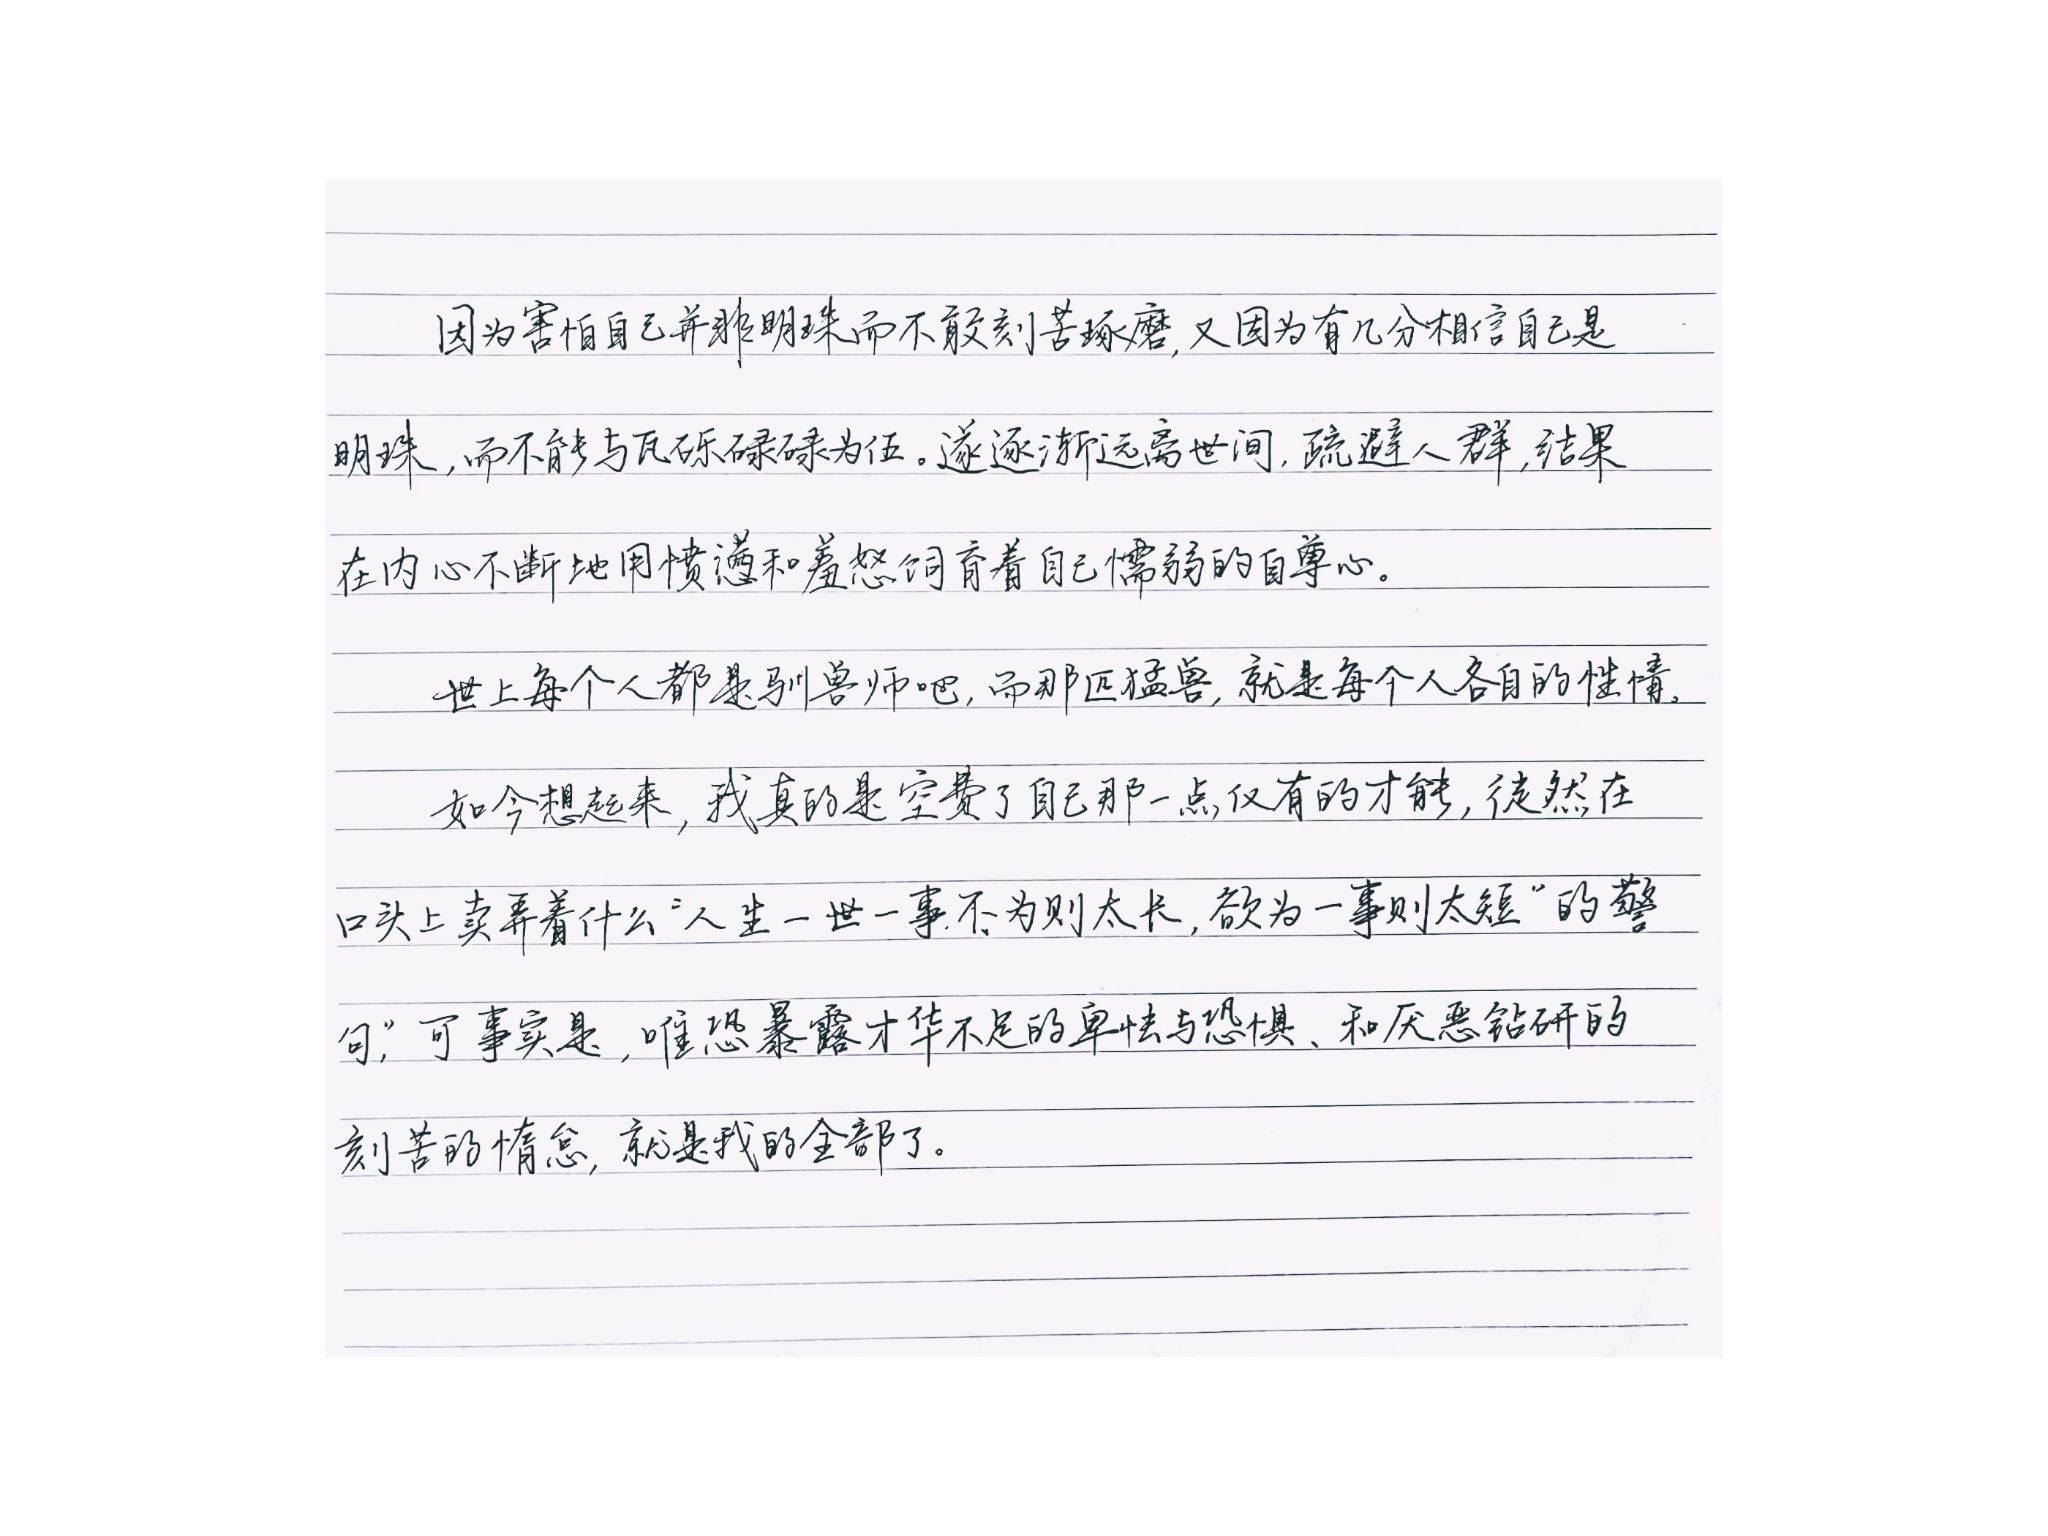 因为害怕自己并非明珠而不敢刻苦琢磨,又因为有几分相信自己是
明珠,而不能与瓦砾碌碌为伍。遂逐渐远离世间,疏避人群,结果
在内心不断地用愤懑和羞怒饲育着自己懦弱的自尊心。
世上每个人都是驯兽师吧,而那匹猛兽,就是每个人各自的性情。
如今想起来,我真的是空费了自己那一点仅有的才能,徒然在
口头上卖弄着什么“人生一世一事不为则太长,欲为一事则太短”的警
句,”可事实是,唯恐暴露才华不足的卑怯与恐惧、和厌恶钻研的
刻苦的惰怠,就是我的全部了。